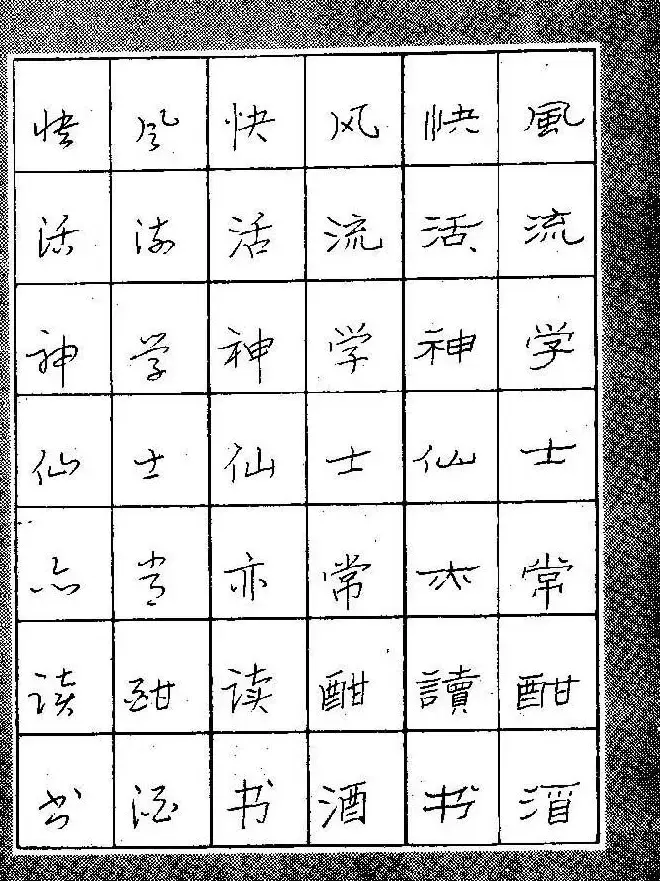 風流学士常酣酒
快活神仙亦讀书
风流学士常酣酒
快活神仙亦读书
风流学士常酣酒
快活神仙亦读书